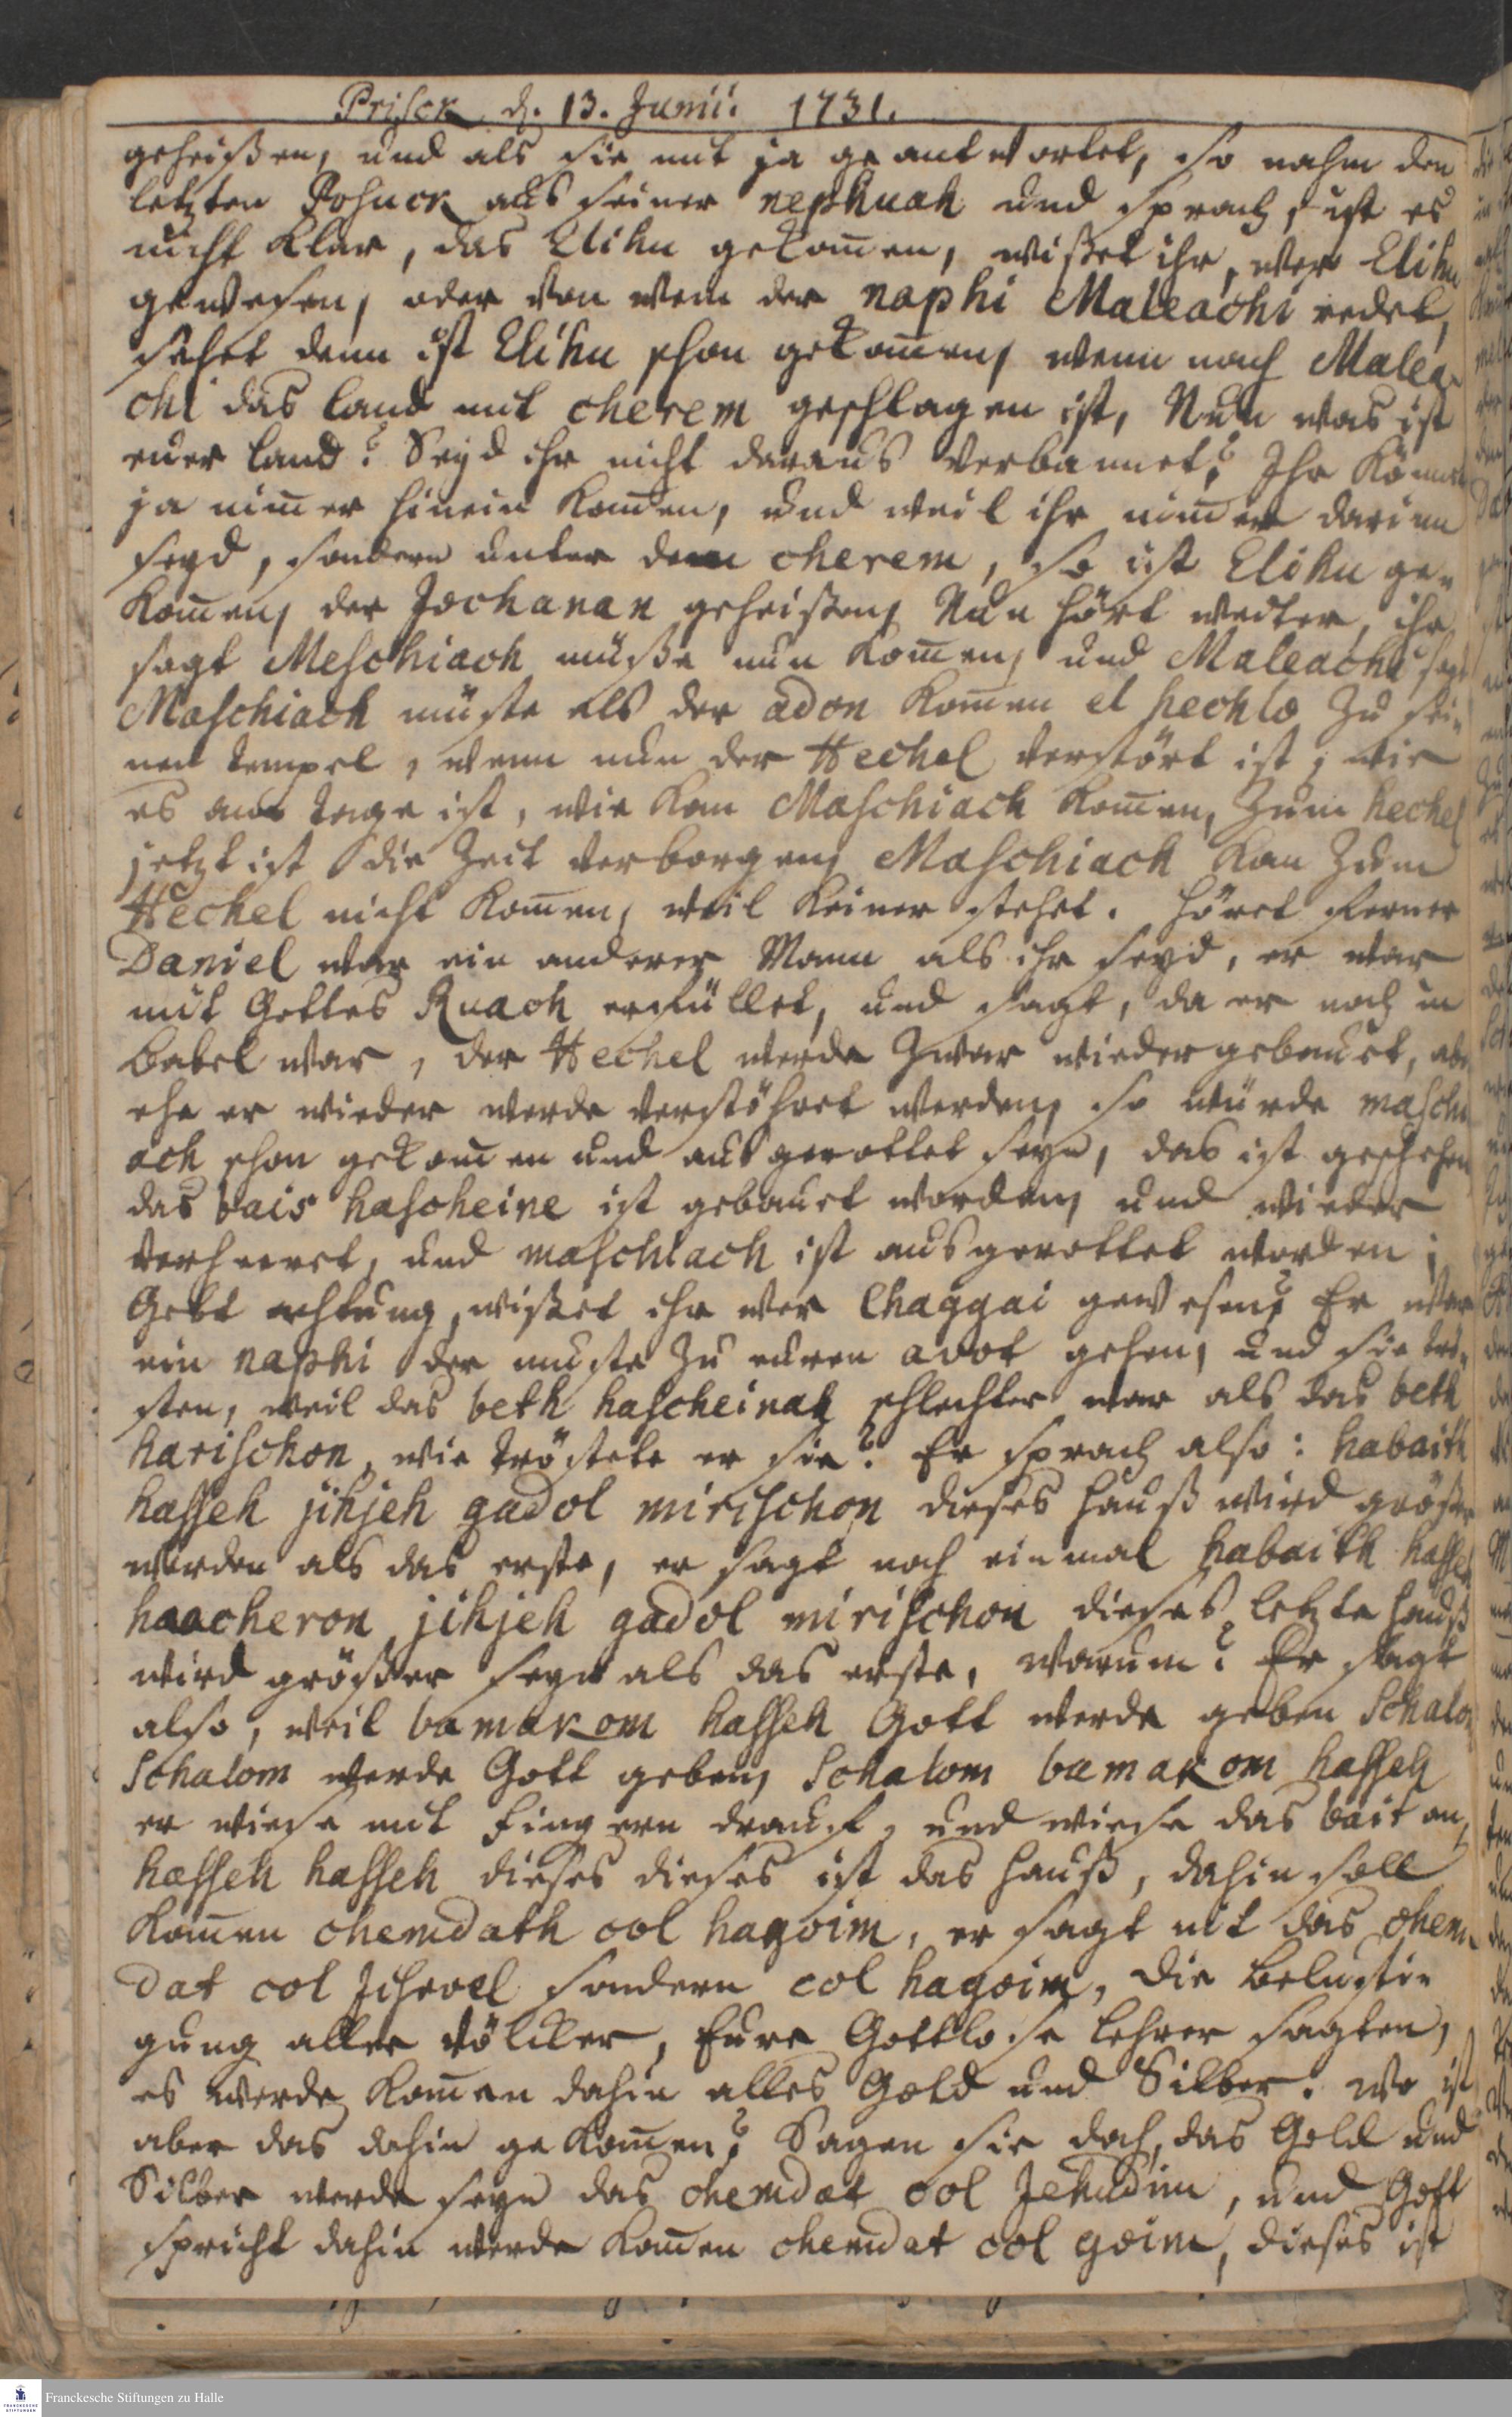 Prisck d. 13. Junii. 1731.
geheißen, und als sie mit ja geantwortet, so nahm den
letzten Posuck aus seiner nephuah und sprach, ist es
nicht klar, das Elihu gekom̄en, wißet ihr, wer Elihu
gewesen, oder von wem der naphi Maleachi redet,
sehet denn ist Elihu schon gekom̄en, wenn nach Malea-
chi das land mit cherem geschlagen ist, Nun was ist
euer land? Seyd ihr nicht daraus verbannet? Ihr könnet
ja nim̄er hinein kom̄en, und weil ihr nim̄er darinn
seyd, sondern unter dem cherem, so ist Elihu ge-
kom̄en, der Jochanan geheißen, Nun hört weiter, ihr
sagt Meschiach müße nun kom̄en, und Maleachi sagt
Maschiach müste als der adon kom̄en el hechlo zu sei-
nen tempel, wenn nun der Hechel verstört ist, wie
es am tage ist, wie kan Maschiach kom̄en, zum hechel
jetzt ist die Zeit verborgen, Maschiach kan zum
Hechel nicht kom̄en, weil keiner stehet. höret ferner
Daniel war ein anderer Mann als ihr seyd, er war
mit Gottes Ruach erfüllet, und sagt, da er noch in
babel war, der Hechel werde zwar wieder gebauet, aber
ehe er wieder werde verstöhret werden, so würde maschi
ach schon gekom̄en und ausgerottet seyn, das ist geschehen
das bais hascheine ist gebauet worden, und wieder
verheeret, und maschiach ist ausgerottet worden;
Gebt achtung, wißet ihr wer Chaggai gewesen? Er war
ein naphi der muste zu euren avot gehen, und sie trö-
sten, weil das beth hascheinah schlechter war als das beth
harischon, wie tröstete er sie? Er sprach also: habaith
hasseh jihjeh gadol mirischon dieses hauß wird größer
werden als das erste, er sagt noch einmal habaith hasseh
haacheron jihjeh gadol mirischon dieses letzte hauß
wird größer seyn als das erste, warum? Er sagt
also, weil bamakom hasseh Gott werde geben Schalom
Schalom werde Gott geben, Schalom bamakom hasseh
er wiese mit fingern drauf, und wiese das bait an,
hasseh hasseh dieses dieses ist das hauß, dahin soll
kom̄en chemdath col hagoim, er sagt nit das chem-
dat col Jisroel sondern col hagoim, die belusti-
gung aller völcker, Eure Gottlose lehrer sagten,
es werde kom̄en dahin alles Gold und Silber. wo ist
aber das dahin gekom̄en? Sagen sie doch, das Gold und
Silber werde seyn das chemdat col Jehudim, und Gott
spricht dahin werde kom̄en chemdat col goim, dieses ist
Franckesche Stiftungen zu Halle